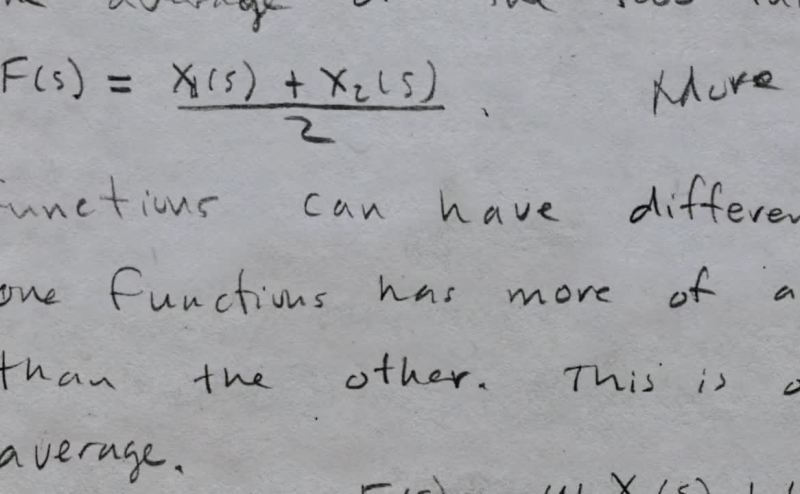 average
F(s) = X1(s) + X2(s) / 2 . More
functions can have differen
one functions has more of a
than the other. This is
average.
F(s) X(s)